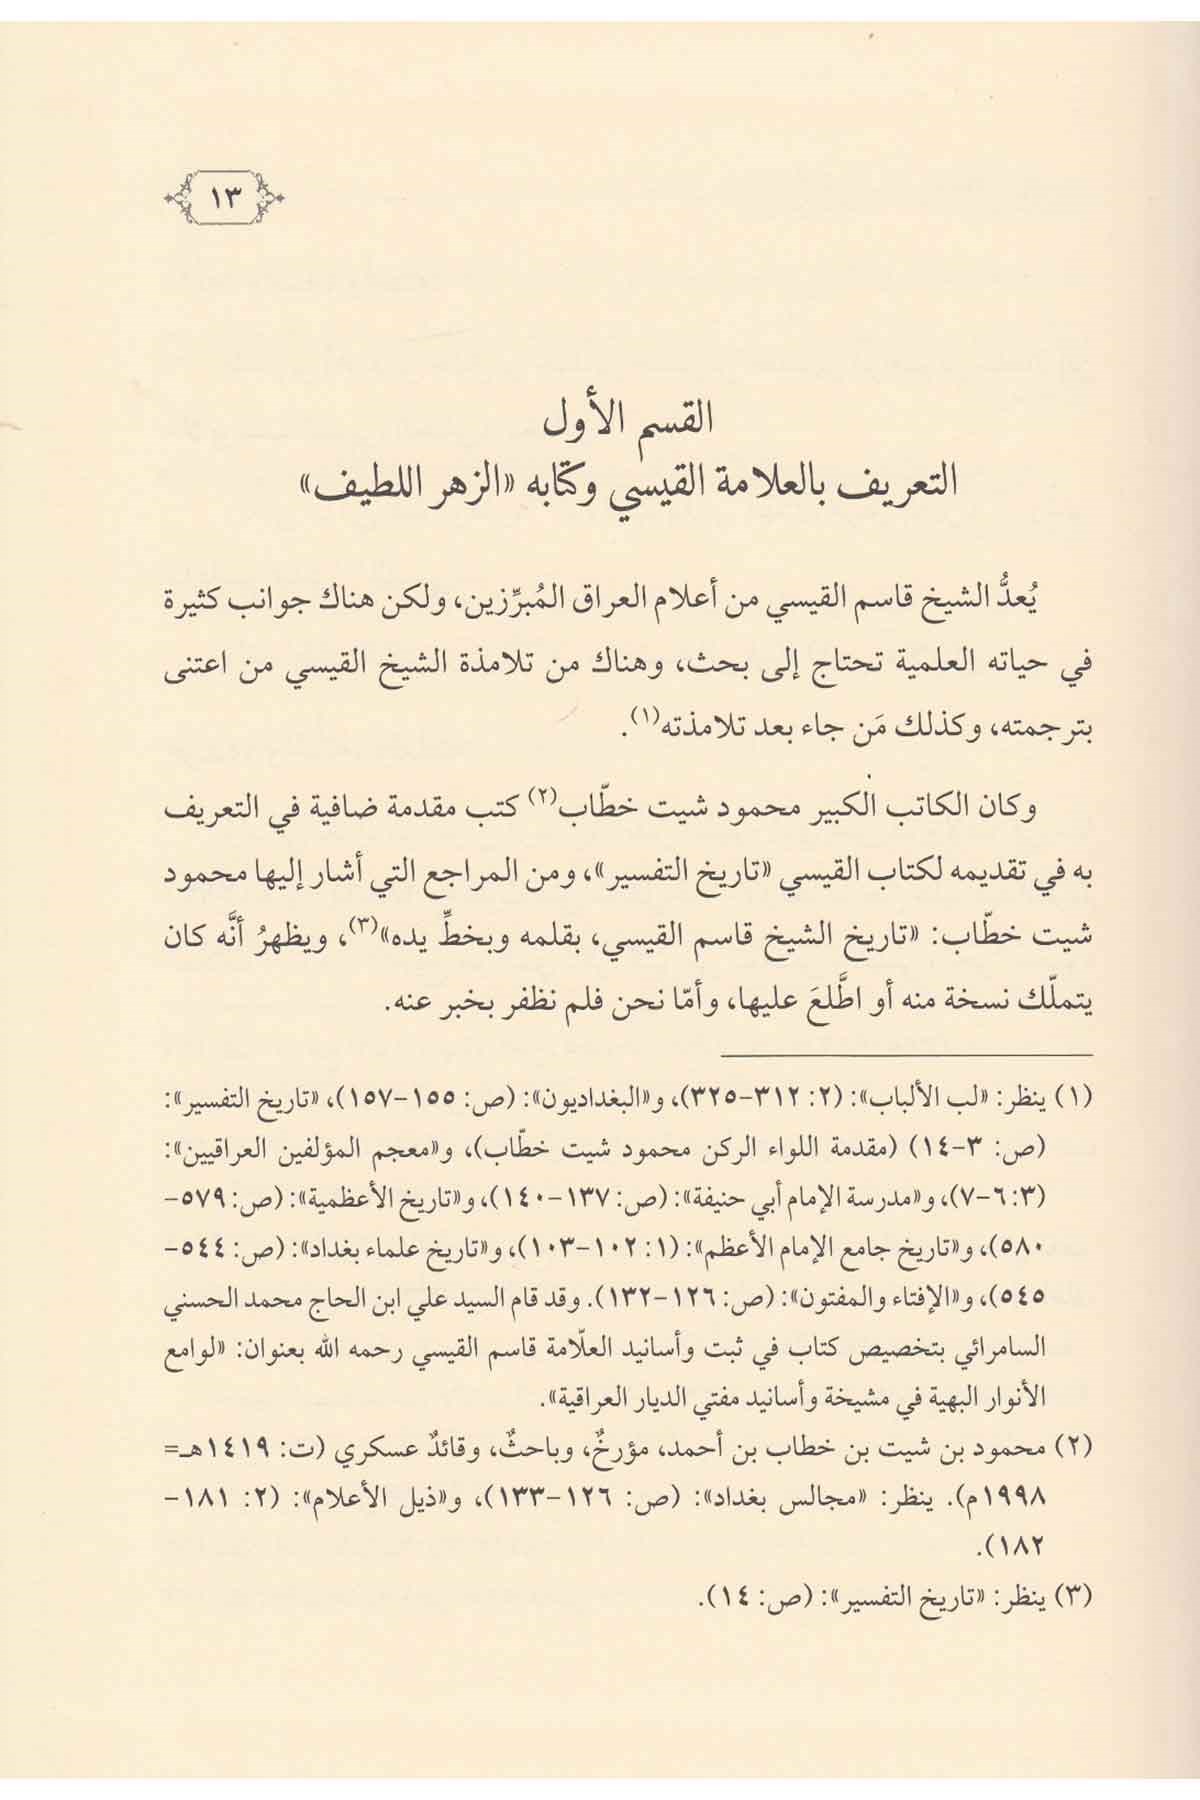 ١٣
القسم الأول
التعريف بالعلامة القيسي وكتابه «الزهر اللطيف»
يُعدُّ الشيخ قاسم القيسي من أعلام العراق المُبرِّزين، ولكن هناك جوانب كثيرة
في حياته العلمية تحتاج إلى بحث، وهناك من تلامذة الشيخ القيسي من اعتنى
بترجمته، وكذلك مَن جاء بعد تلامذته(١).
وكان الكاتب الكبير محمود شيت خطّاب(٢) كتب مقدمة ضافية في التعريف
به في تقديمه لكتاب القيسي «تاريخ التفسير»، ومن المراجع التي أشار إليها محمود
شيت خطّاب: «تاريخ الشيخ قاسم القيسي، بقلمه وبخطِّ يده»(٣)، ويظهرُ أنَّه كان
يتملّك نسخة منه أو اطَّلعَ عليها، وأمّا نحن فلم نظفر بخبر عنه.
(١) ينظر: «لب الألباب»: (٢: ٣١٢-٣٢٥)، و«البغداديون»: (ص: ١٥٥-١٥٧)، «تاريخ التفسير»:
(ص: ٣-١٤) (مقدمة اللواء الركن محمود شيت خطّاب)، و«معجم المؤلفين العراقيين»:
(٣: ٦-٧)، و«مدرسة الإمام أبي حنيفة»: (ص: ١٣٧-١٤٠)، و«تاريخ الأعظمية»: (ص: ٥٧٩-
٥٨٠)، و«تاريخ جامع الإمام الأعظم»: (١: ١٠٢-١٠٣)، و«تاريخ علماء بغداد»: (ص: ٥٤٤-
٥٤٥)، و«الإفتاء والمفتون»: (ص: ١٢٦-١٣٢). وقد قام السيد علي ابن الحاج محمد الحسني
السامرائي بتخصيص كتاب في ثبت وأسانيد العلّامة قاسم القيسي رحمه الله بعنوان: «لوامع
الأنوار البهية في مشيخة وأسانيد مفتي الديار العراقية».
(٢) محمود بن شيت بن خطاب بن أحمد، مؤرخٌ، وباحثٌ، وقائدٌ عسكري (ت: ١٤١٩هـ=
١٩٩٨م). ينظر: «مجالس بغداد»: (ص: ١٢٦-١٣٣)، و«ذيل الأعلام»: (٢: ١٨١-
١٨٢).
(٣) ينظر: «تاريخ التفسير»: (ص: ١٤).